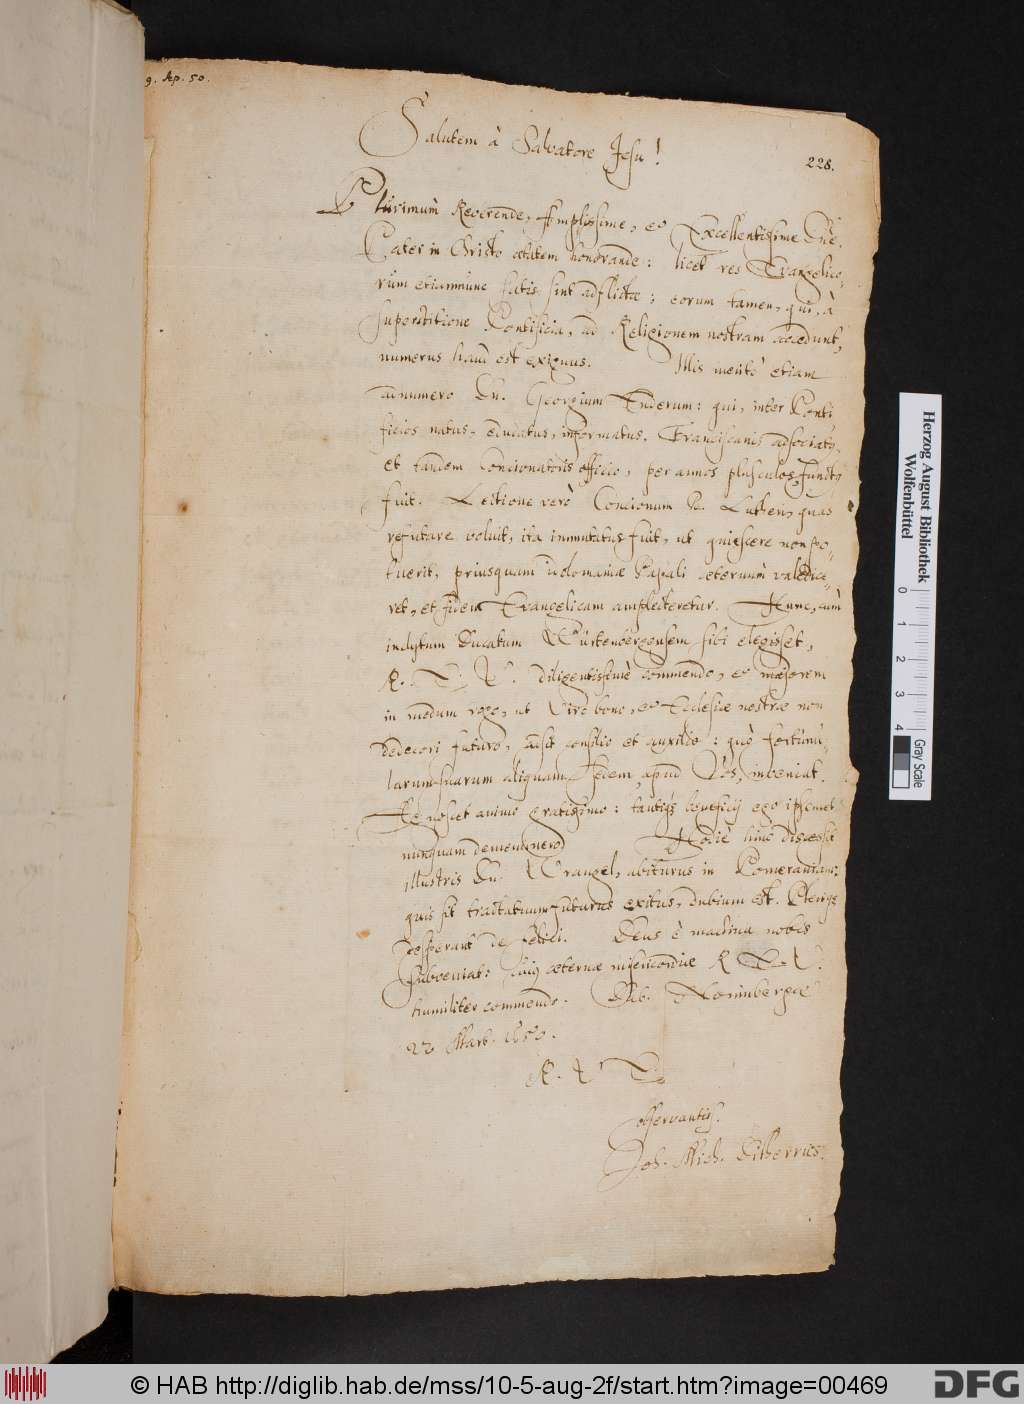 9. Ap. 50.
Salutem à Salvatore Jesu!
228.
Plurimùm Reverende, Amplissime, et Excellentissime Dne
Pater in Christo aetatem honorande: licet res Evangelico-
rum etiamnunc satis sint adflictae; eorum tamen, qui, à
superstitione Pontificia, ad Religionem nostram accedunt,
numerus haud est exiguus. Illis meritò etiam
adnumero Dn. Georgium Enderum: qui, inter Ponti
ficios natus, educatus, informatus, Franciscanis adsociatus,
et tandem Concionatoris officio, per annos plusculos, functus
fuit. Lectione verò Concionum B. Lutheri, quas
refutare voluit, ita immutatus fuit, ut quiescere non po-
tuerit, priusquam idolomaniae Papali aeternùm valedice-
ret, et fidem Evangelicam amplecteretur. Hunc, cùm
inclytum Ducatum Würtenbergensem sibi elegisset,
R. T. V. diligentissimè commendo, et majorem
in modum rogo, ut Viro bono, et Ecclesiae nostrae non
dedecori futuro, adsit consilio et auxilio: quò fortunu-
larum suarum aliquam sedem, apud Vos, inveniat.
Agnoscet animo gratissimo: tantique beneficij ego ipsemet
nunquam deimmemero Hodiè hinc discessit
illustris Dn. Wrangel, abiturus in Pomeraniam;
quis sit tractatuum futurus exitus, dubium est. Plerique
desperant de felici. Deus è machina nobis
subveniat: cuius aeternae misericordiae R T V.
humiliter commendo. Dab. Norinbergae
22 Mart. 1650.
R. V T.
observantiss.
Joh. Mich. Dilherrus.
Herzog August Bibliothek
Wolfenbüttel
0 1 2 3 4
Gray Scale
© HAB http://diglib.hab.de/mss/10-5-aug-2f/start.htm?image=00469
DFG